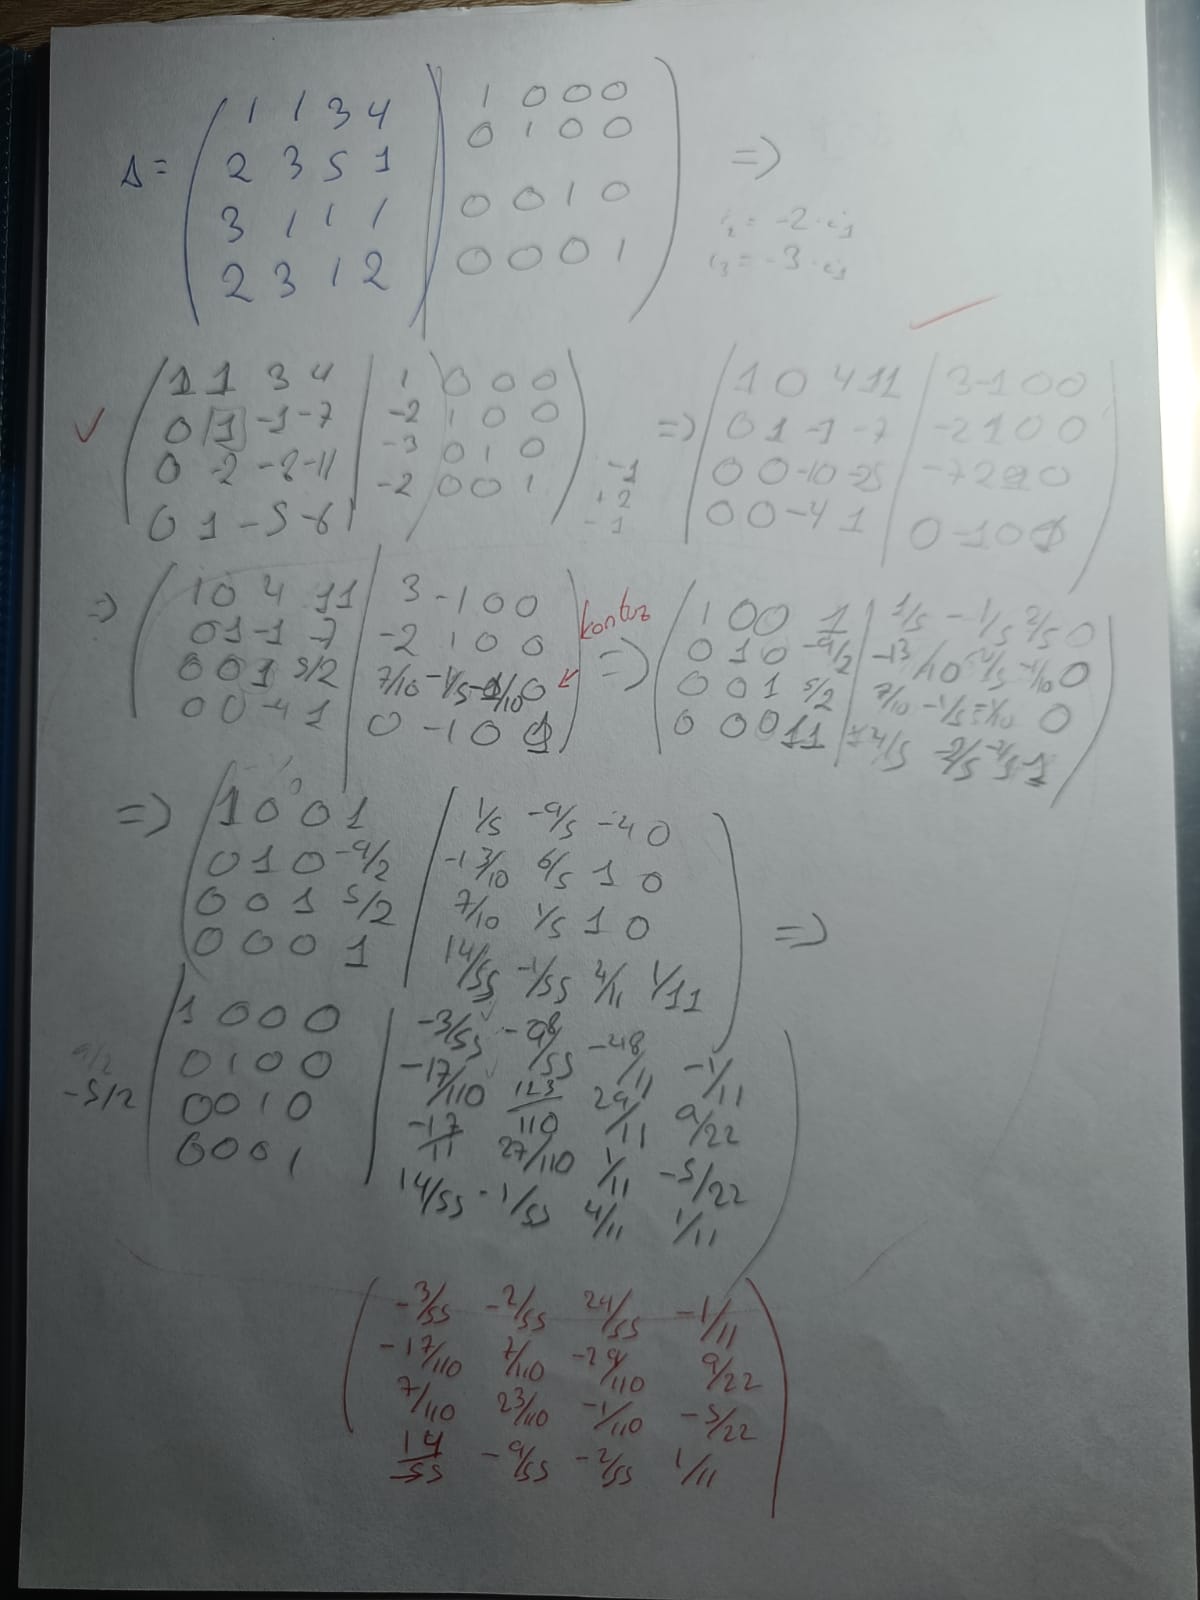 A = ( 1 1 3 4 | 1 0 0 0 )
2 3 5 1 | 0 1 0 0 =>
3 1 1 1 | 0 0 1 0 i₂ = -2·i₁
2 3 1 2 | 0 0 0 1 i₃ = -3·i₁
( 1 1 3 4 | 1 0 0 0 )
✓ 0 1 -1 -7 | -2 1 0 0
0 -2 -8 -11 | -3 0 1 0 -1
0 1 -5 -6 | -2 0 0 1 +2
-1
✓
=> ( 1 0 4 11 | 3 -1 0 0 )
0 1 -1 -7 | -2 1 0 0
0 0 -10 -25 | -7 2 0
0 0 -4 1 | 0 -1 0 1
=> ( 1 0 4 11 | 3 -1 0 0 ) kontuz
0 1 -1 -7 | -2 1 0 0
0 0 1 5/2 | 7/10 -1/5 -1/10 0
0 0 -4 1 | 0 -1 0 1
=> ( 1 0 0 1 | 1/5 -1/5 2/5 0 )
0 1 0 -9/2 | -13/10 4/5 -1/10 0
0 0 1 5/2 | 7/10 -1/5 -1/10 0
0 0 0 11 | 1
=> ( 1 0 0 1 | 1/5 -9/5 -4 0 )
0 1 0 -9/2 | -13/10 6/5 1 0
0 0 1 5/2 | 7/10 1/5 1 0 =>
0 0 0 1 | 14/55 -1/55 4/11 1/11
1 0 0 0 | -3/55 -98/55 -48/11 -1/11
9/2 0 1 0 0 | -17/110 123/110 29/11 9/22
-5/2 0 0 1 0 | -17/11 27/110 1/11 -5/22
0 0 0 1 | 14/55 -1/55 4/11 1/11
( -3/55 -2/55 24/55 -1/11 )
-17/110 7/110 -29/110 9/22
7/110 23/110 -1/110 -5/22
14/55 -9/55 -2/55 1/11